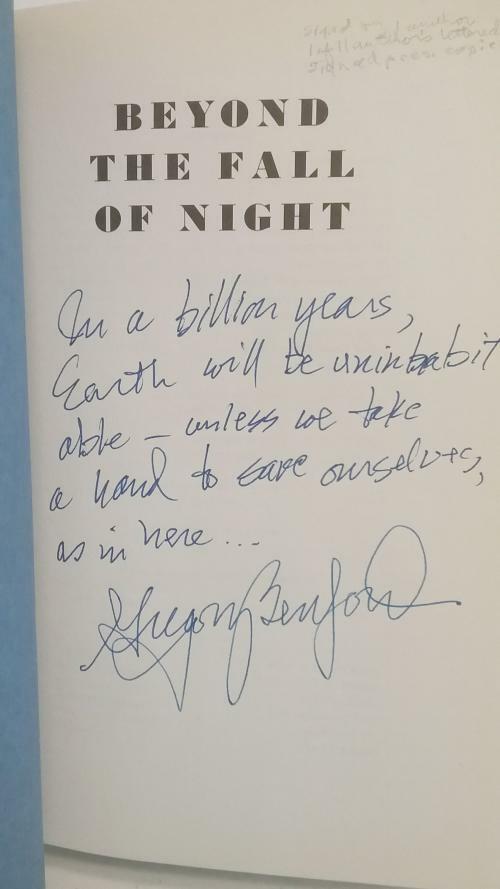 Signed by author
signed press copie
BEYOND
THE FALL
OF NIGHT
In a billion years,
Earth will be uninhabit
able — unless we take
a hand to save ourselves,
as in here ...
Gregory Benford